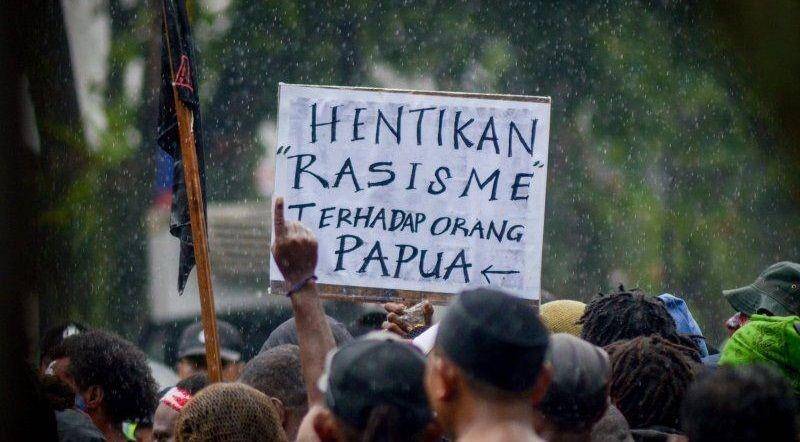 HENTIKAN
"RASISME"
TERHADAP ORANG
PAPUA ←